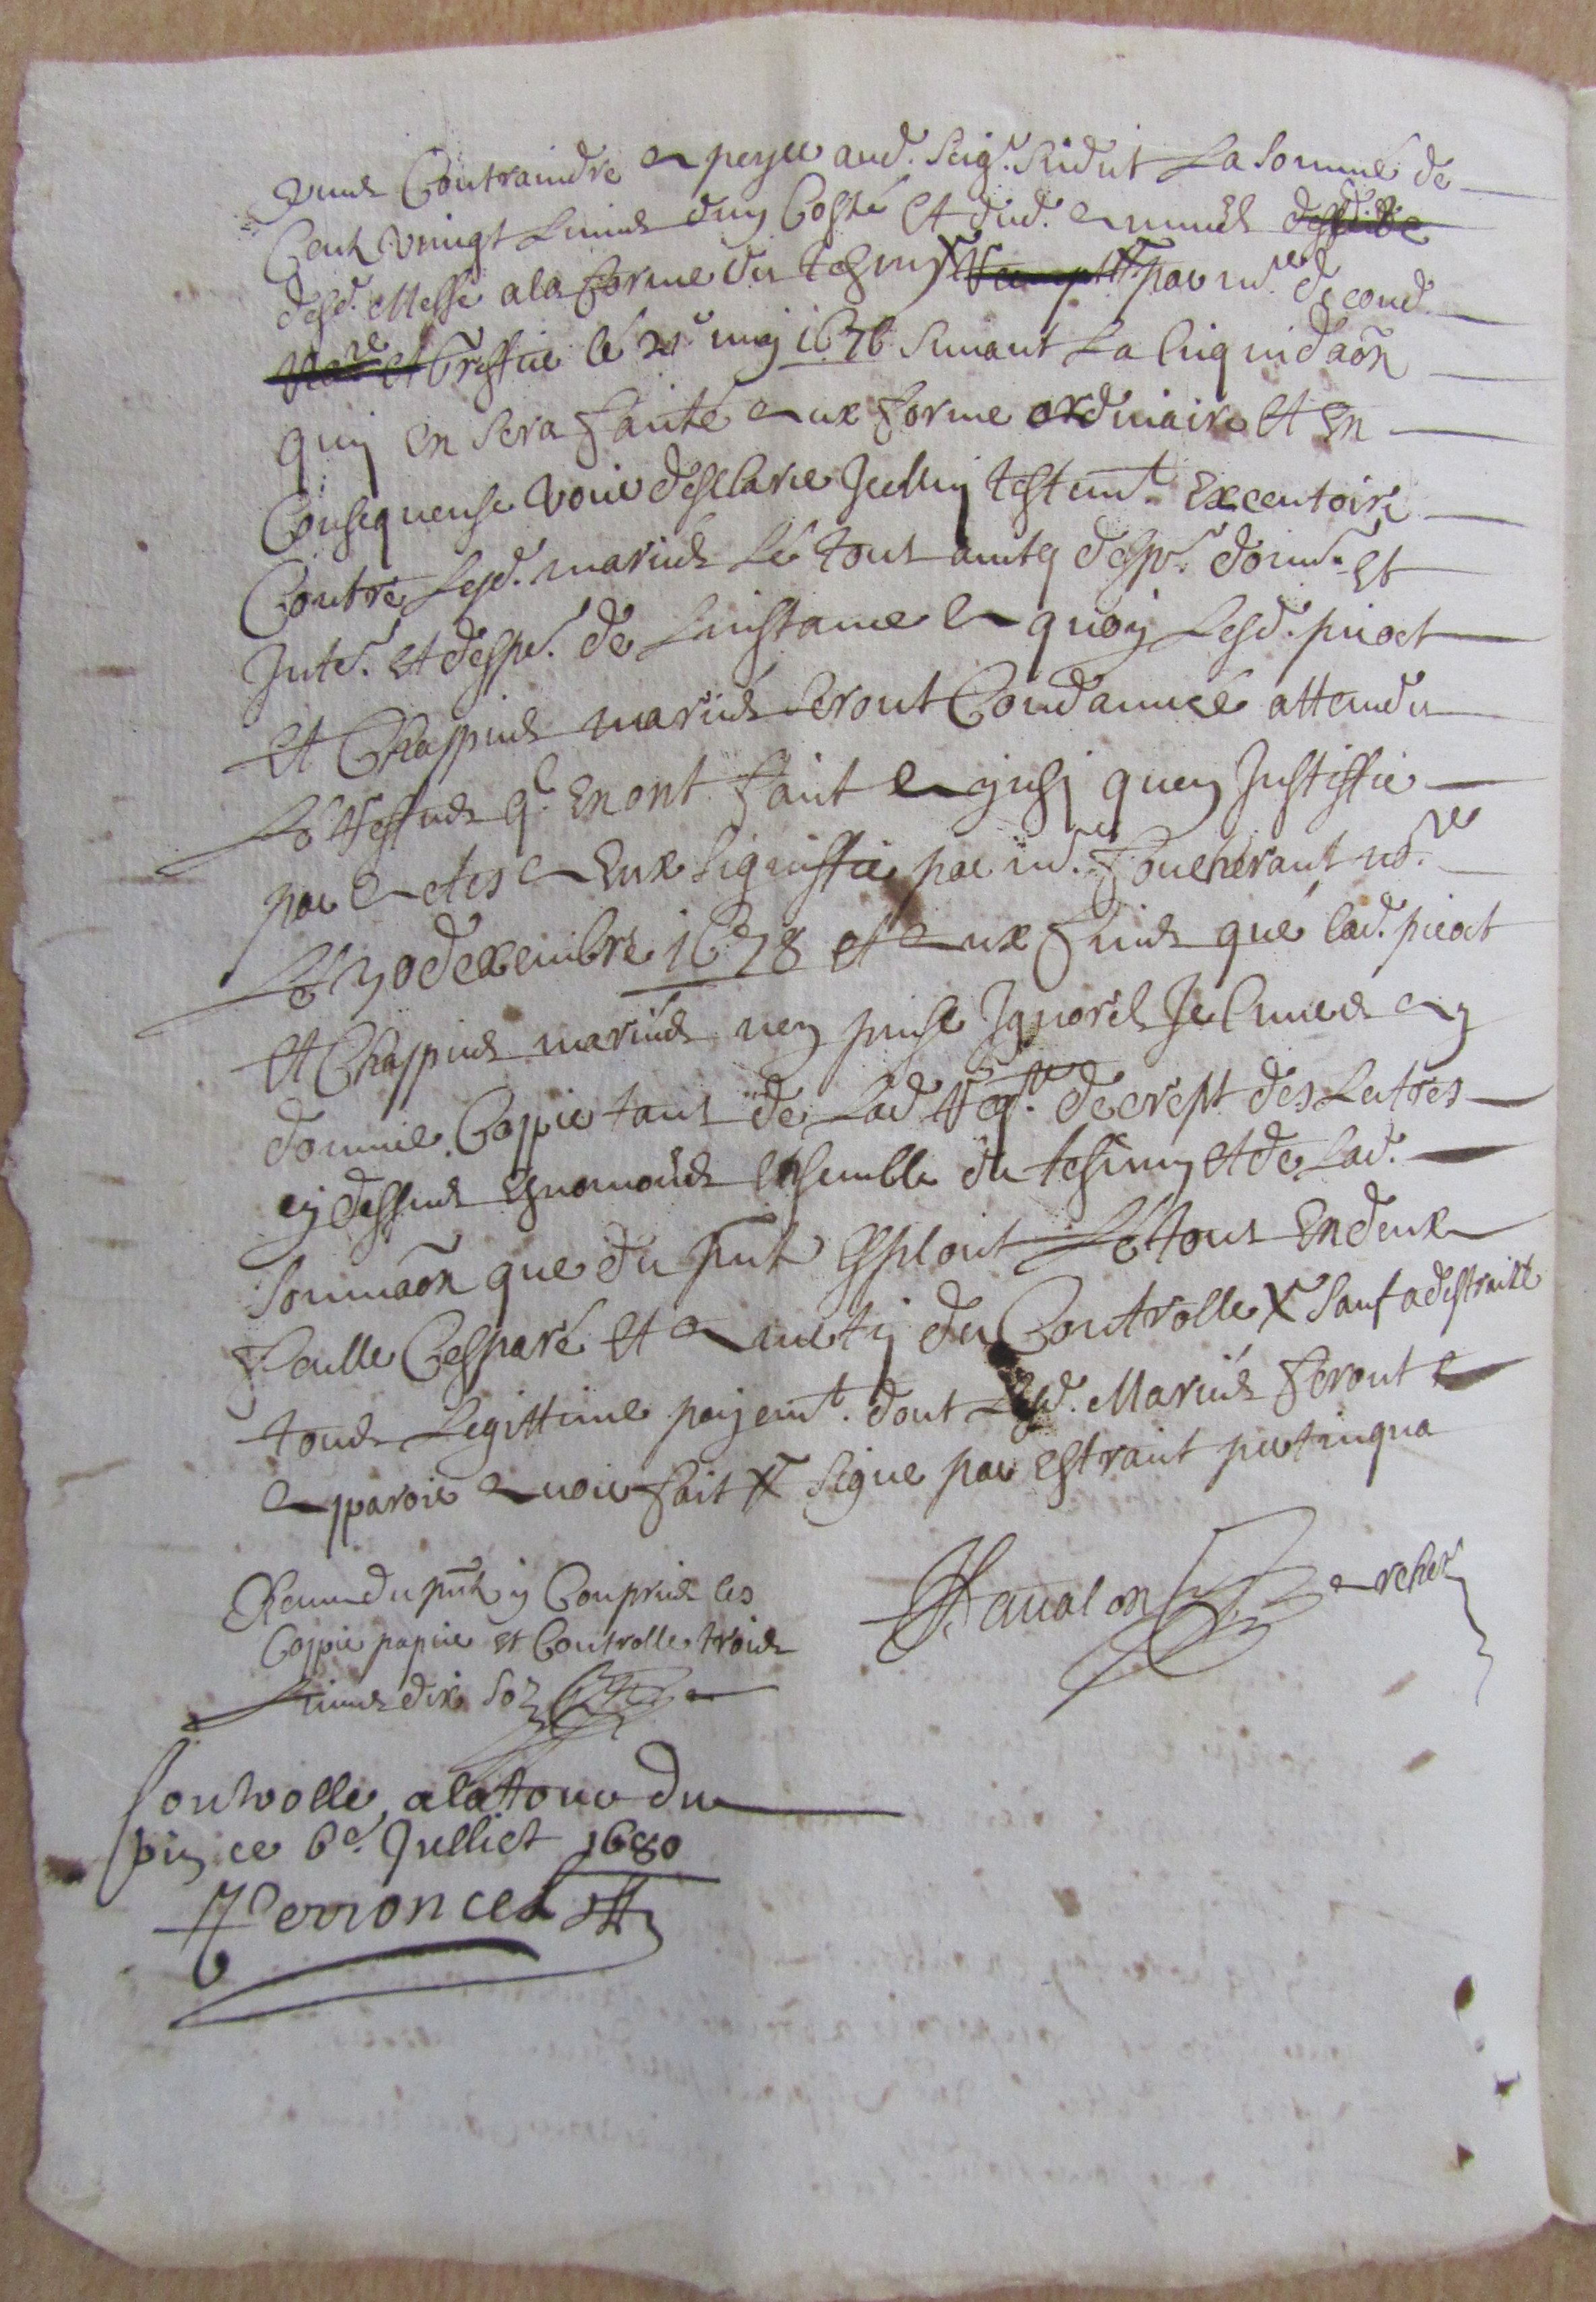 Contraindre a peyer aud. Seig.r la somme de
Cent vingt Livres dung Costé Et dud. annuel
desd. Messe a la forme du tesm.t par m.e
Greffier le 21e may 1676 Suivant La liquidaon
quy En Sera faitte aux forme ordinaire Et En
Consequense voir desclarer Icelluy testam.t Executoire
Contre Lesd. mariés Le tout avecq desp.s dom.s Et
Inte.s Et desp.s de Linstance A quoy Lesd. pieot
Et Chappuis mariés Seront Condamnés attendu
Le reffus q.l En ont fait Ainsi quen Justiffie
par Actes A Eux Signiffié par m.e Foucherant no.re
Le 30 dexembre 1678 et aux fins que lad. pieot
Et Chappuis mariés ney puise Ignorer Je Leur ay
donnée Coppie tant de Lad. Req.te decrept des Lettres
cy dessus Esnoncés Ensemble du tesm.t Et de Lad.
Sommaon que du pnt Exploit Le tout En deux
feulle Cesparé Et averty du Controlle X Sauf a destraitte
tous Legittime payem.t dont Lesd. Mariés feront
apparoir avoir fait X Signe par Estrait pertinqua
Havalon archer
Receu du pnt y Compris les
Coppie papier Et Controlle trois
Livres dix solz
Controlle a la tour du
pin ce 6e Julliet 1680
Perroncel